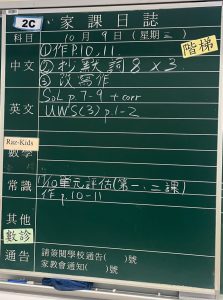 2C
家課日誌
科目 10月9日(星期三)
階梯
中文 ①作P.10,11
②抄默詞8×3
③改寫作
英文 SoL p.7-9 + corr
UWS(3) p.1-2
Raz-Kids
數學
常識 17/10單元評估(第一、二課)
作 p.10-11
其他
數診
通告 請簽閱學校通告( )號
家教會通知( )號